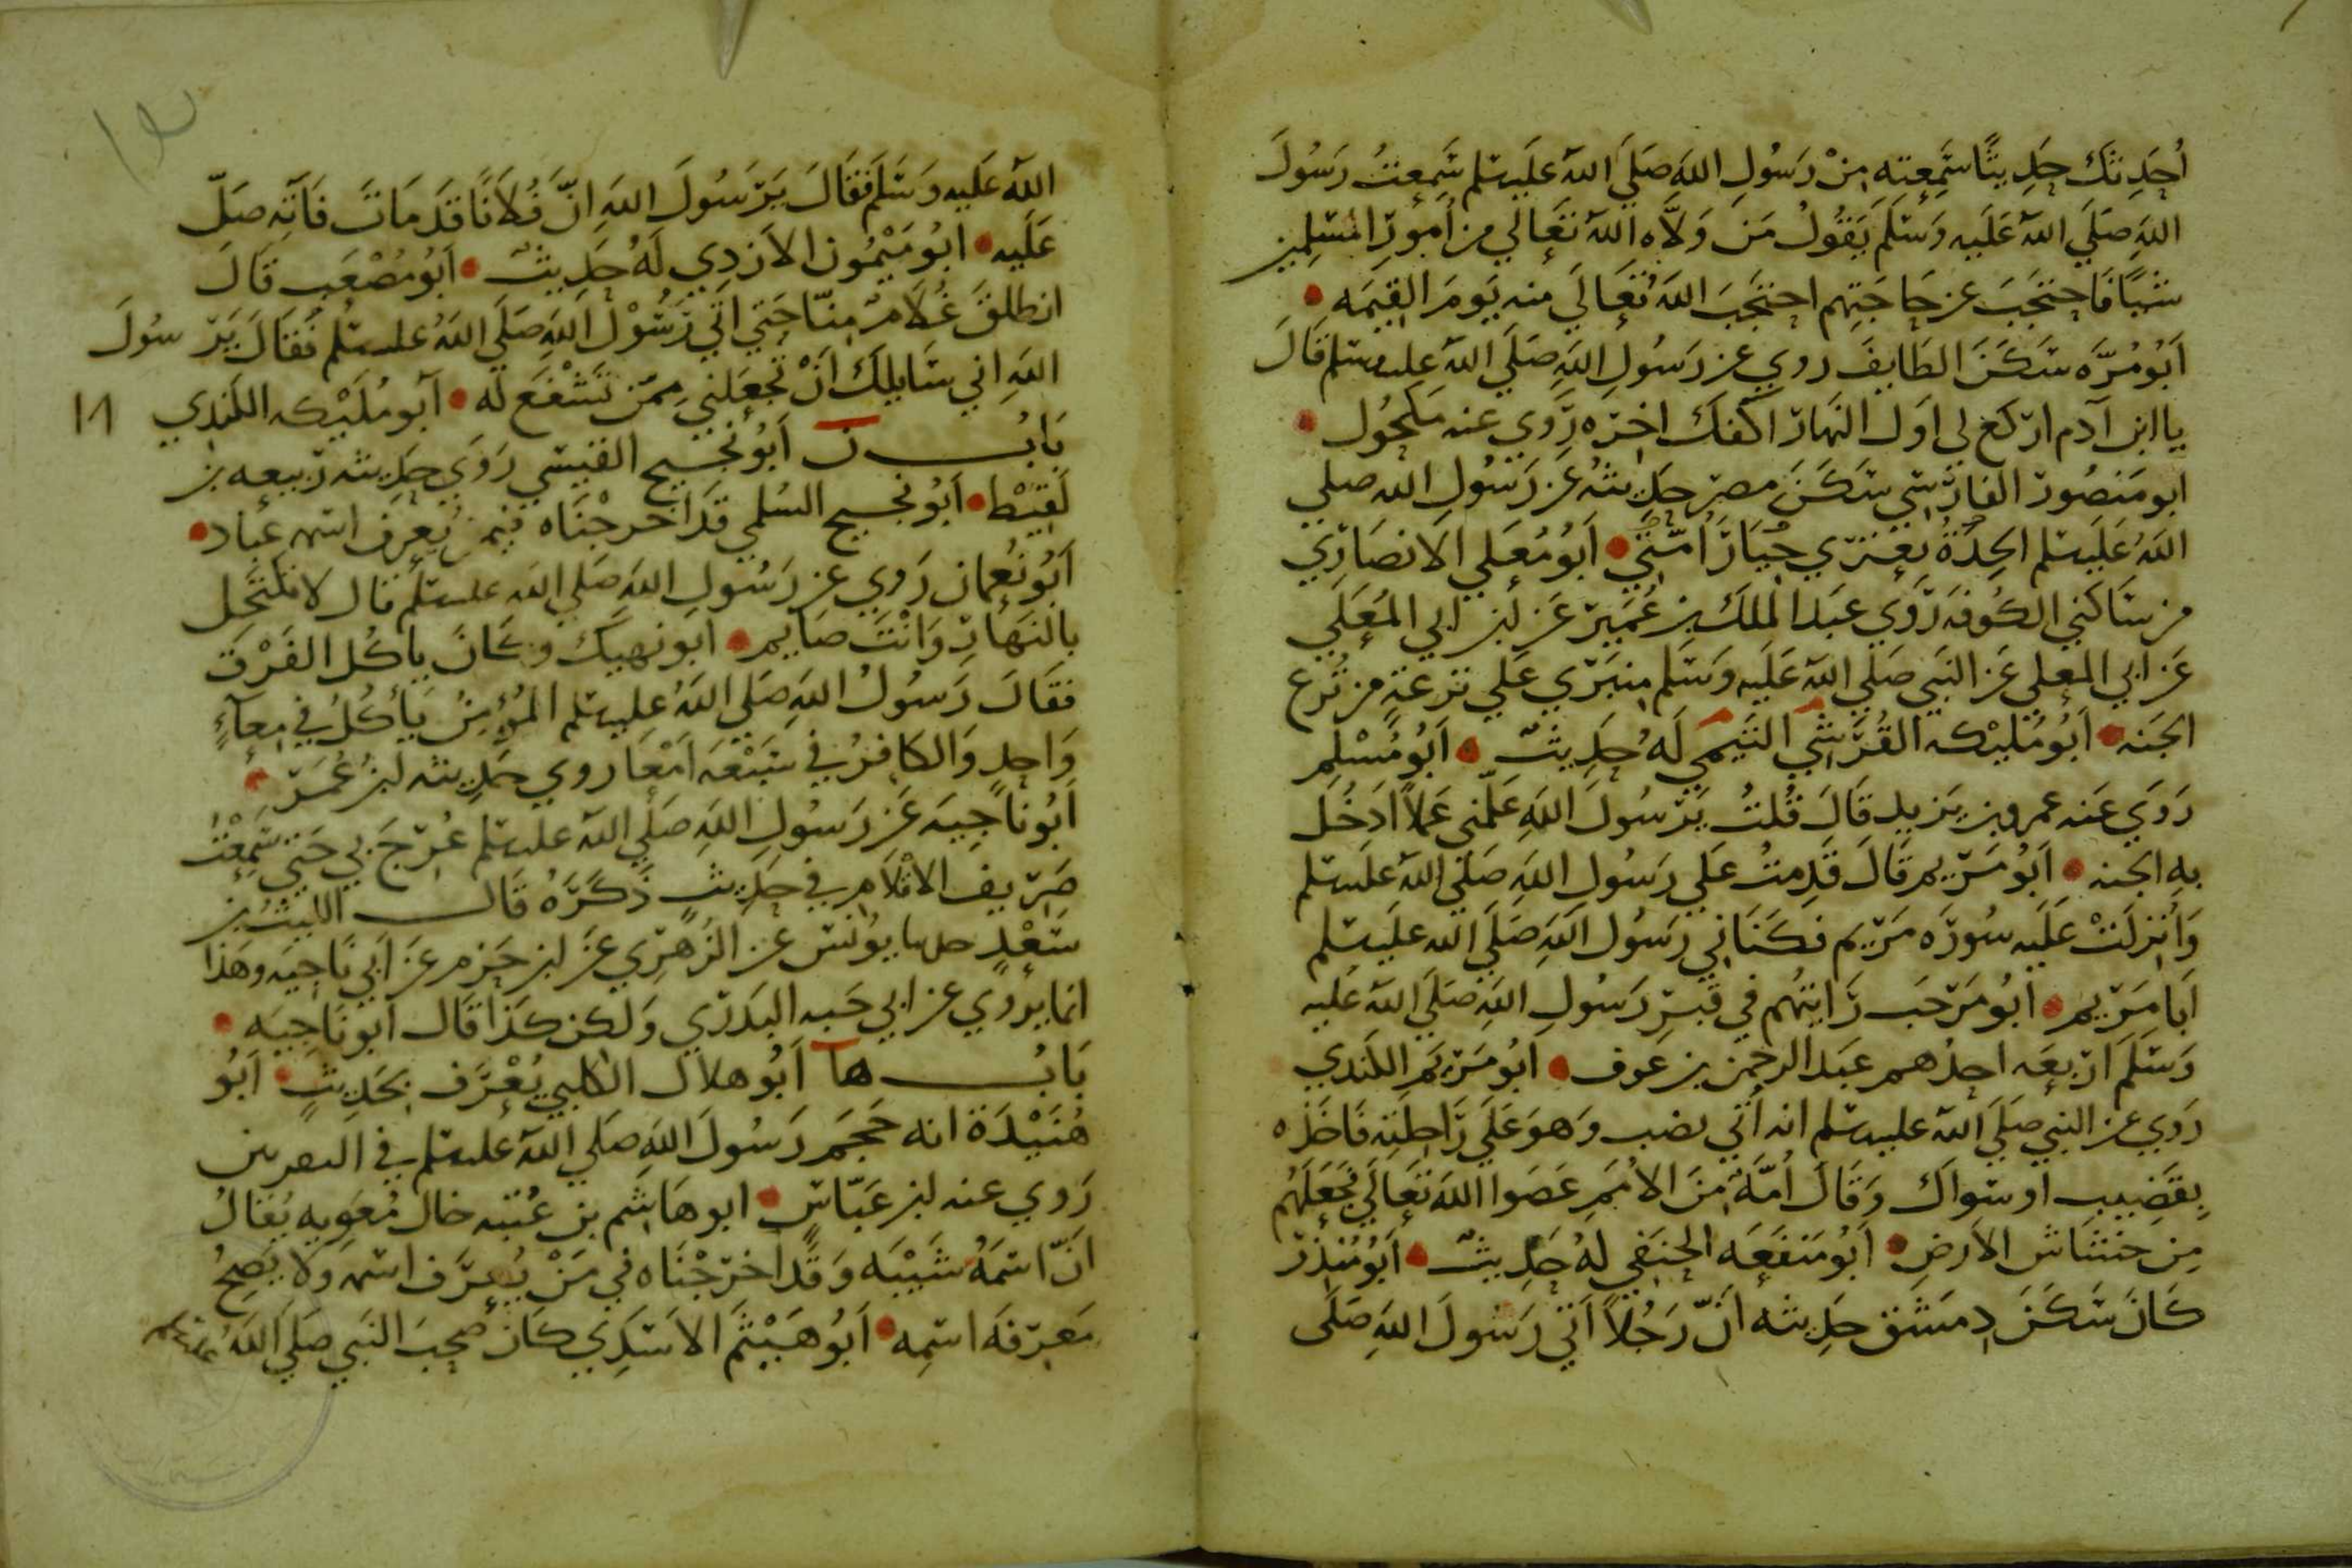 أحدثك حديثا سمعته من رسول الله صلى الله عليه سلم سمعت رسول
الله صلى الله عليه وسلم يقول من ولاه الله تعالى من أمور المسلمين
شيئا فاحتجب عن حاجتهم احتجب الله تعالى منه يوم القيمه
أبو مره سكن الطايف روي عن رسول الله صلى الله عليه سلم قال
يا ابن آدم اركع لى اول النهار اكفك اخره روي عنه مكحول
ابو منصور الفارسي سكن مصر حديثه عن رسول الله صلى
الله عليه سلم الحدة تعتري خيار أمتي أبو معلى الانصاري
من ساكني الكوفه روى عبد الملك بن عمير عن ابن ابي المعلى
عن ابي المعلى عن النبي صلى الله عليه وسلم منبري على ترعة من ترع
الجنه أبو مليكه القرشي التيمي له حديث أبو مسلم
روى عنه عمرو بن يزيد قال قلت يرسول الله علمني عملا ادخل
به الجنه أبو مريم قال قدمت على رسول الله صلى الله عليه سلم
وأنزلت عليه سوره مريم فكناني رسول الله صلى الله عليه سلم
أبا مريم أبو مرحب رايتهم في قبر رسول الله صلى الله عليه
وسلم اربعه احدهم عبد الرحمن بن عوف أبو مريم الكندي
روي عن النبي صلى الله عليه سلم انه أتي بضب وهو على راحلته فاخذه
بقضيب او سواك وقال أمة من الامم عصوا الله تعالى فجعلهم
من خشاش الارض أبو منفعه الحنفي له حديث أبو منذر
كان سكن دمشق حديثه ان رجلا أتى رسول الله صلى
الله عليه وسلم فقال يرسول الله ان فلانا قد مات فاته صل
عليه ابو ميمون الازدي له حديث أبو مصعب قال
انطلق غلام منا حتى اتى رسول الله صلى الله عليه سلم فقال يرسول
الله اني سايلك أن تجعلني ممن تشفع له أبو مليكه الكندي
باب ن أبو نجيح القيسي روى حديثه ربيعه بن
لقيط أبو نجيح السلمي قد اخرجناه فيمن يعرف اسمه عباد
أبو نعمان روي عن رسول الله صلى الله عليه سلم قال لا تكتحل
بالنهار وانت صايم ابو نهيك وكان ياكل الفرق
فقال رسول الله صلى الله عليه سلم المؤمن يأكل في معاء
واحد والكافر في سبعه امعا روي حديثه ابن عمر
أبو ناجيه عن رسول الله صلى الله عليه سلم عرج بي حتى سمعت
صريف الاقلام في حديث ذكره قال الليث بن
سعد يونس عن الزهري عن ابن حزم عن أبي ناجيه وهذا
انما يروي عن ابي حبه البدري ولكن كذا قال ابو ناجيه
باب ها أبو هلال الكلبي يعرف بحديث أبو
هنيدة انه حجم رسول الله صلى الله عليه سلم في
روي عنه ابن عباس ابو هاشم بن عتبه خال معويه يقال
ان اسمه شيبه وقد اخرجناه في من يعرف اسمه ولا يصح
معرفه اسمه أبو هيثم الاسدي كان صحب النبي صلى الله